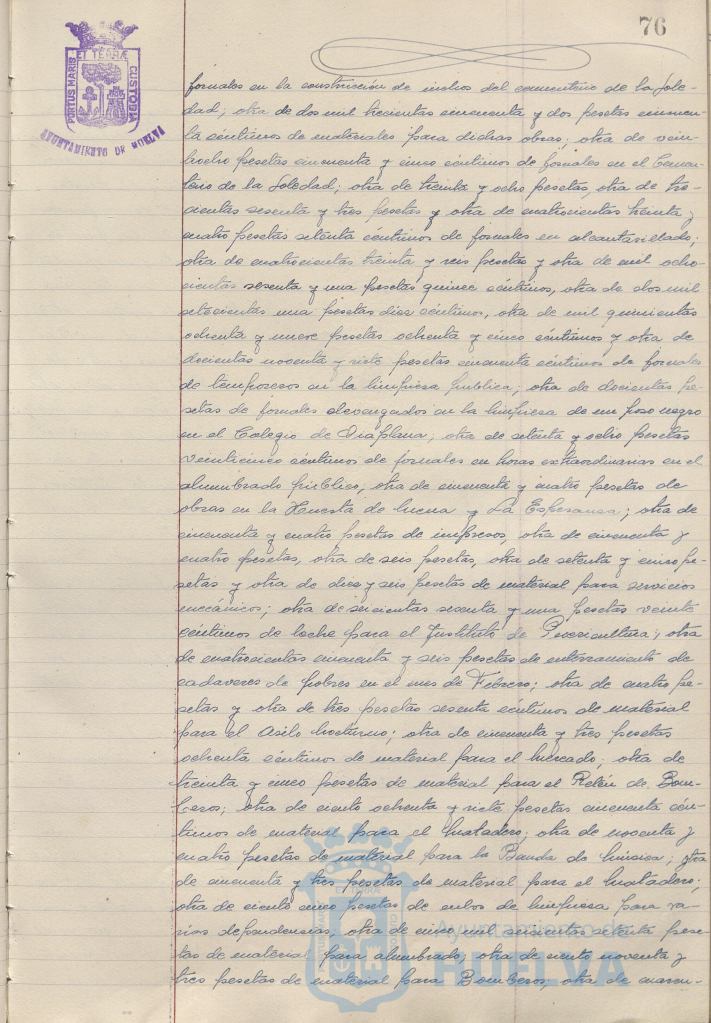 76
PORTUS MARIS ET TERRÆ CUSTODIA
AYUNTAMIENTO DE HUELVA
jornales en la construcción de nichos del cementerio de la Sole-
dad; otra de dos mil trecientas cincuenta y dos pesetas cincuen-
ta céntimos de materiales para dichas obras; otra de vein-
tiocho pesetas cincuenta y cinco céntimos de jornales en el Cemen-
terio de la Soledad; otra de treinta y ocho pesetas, otra de tre-
cientas sesenta y tres pesetas y otra de cuatrocientas treinta y
cuatro pesetas setenta céntimos de jornales en alcantarillado;
otra de cuatrocientas treinta y seis pesetas y otra de mil ocho-
cientas sesenta y una pesetas quince céntimos, otra de dos mil
setecientas una pesetas diez céntimos, otra de mil quinientas
ochenta y nueve pesetas ochenta y cinco céntimos y otra de
docientas noventa y siete pesetas cincuenta céntimos de jornales
de temporeros en la limpieza pública; otra de docientas pe-
setas de jornales devengados en la limpieza de un pozo negro
en el Colegio de Viaplana; otra de setenta y ocho pesetas
veinticinco céntimos de jornales en horas extraordinarias en el
alumbrado público; otra de cincuenta y cuatro pesetas de
obras en la Huerta de Mena y La Esperanza; otra de
cincuenta y cuatro pesetas de impresos, otra de cincuenta y
cuatro pesetas, otra de seis pesetas, otra de setenta y cinco pe-
setas y otra de diez y seis pesetas de material para servicios
mecánicos; otra de seicientas sesenta y una pesetas veinte
céntimos de leche para el Instituto de Puericultura; otra
de cuatrocientas cincuenta y seis pesetas de enterramiento de
cadaveres de pobres en el mes de Febrero; otra de cuatro pe-
setas y otra de tres pesetas sesenta céntimos de material
para el Asilo nocturno; otra de cincuenta y tres pesetas
ochenta céntimos de material para el mercado; otra de
treinta y cinco pesetas de material para el Retén de Bom-
beros; otra de ciento ochenta y siete pesetas cincuenta cén-
timos de material para el Matadero; otra de noventa y
cuatro pesetas de material para la Banda de Música; otra
de cincuenta y tres pesetas de material para el Matadero;
otra de ciento cinco pesetas de cubos de limpieza para va-
rias dependencias, otra de cinco mil seicientas setenta pese-
tas de material para alumbrado; otra de ciento noventa y
tres pesetas de material para Bomberos, otra de cuaren-
Ayuntamiento de
HUELVA